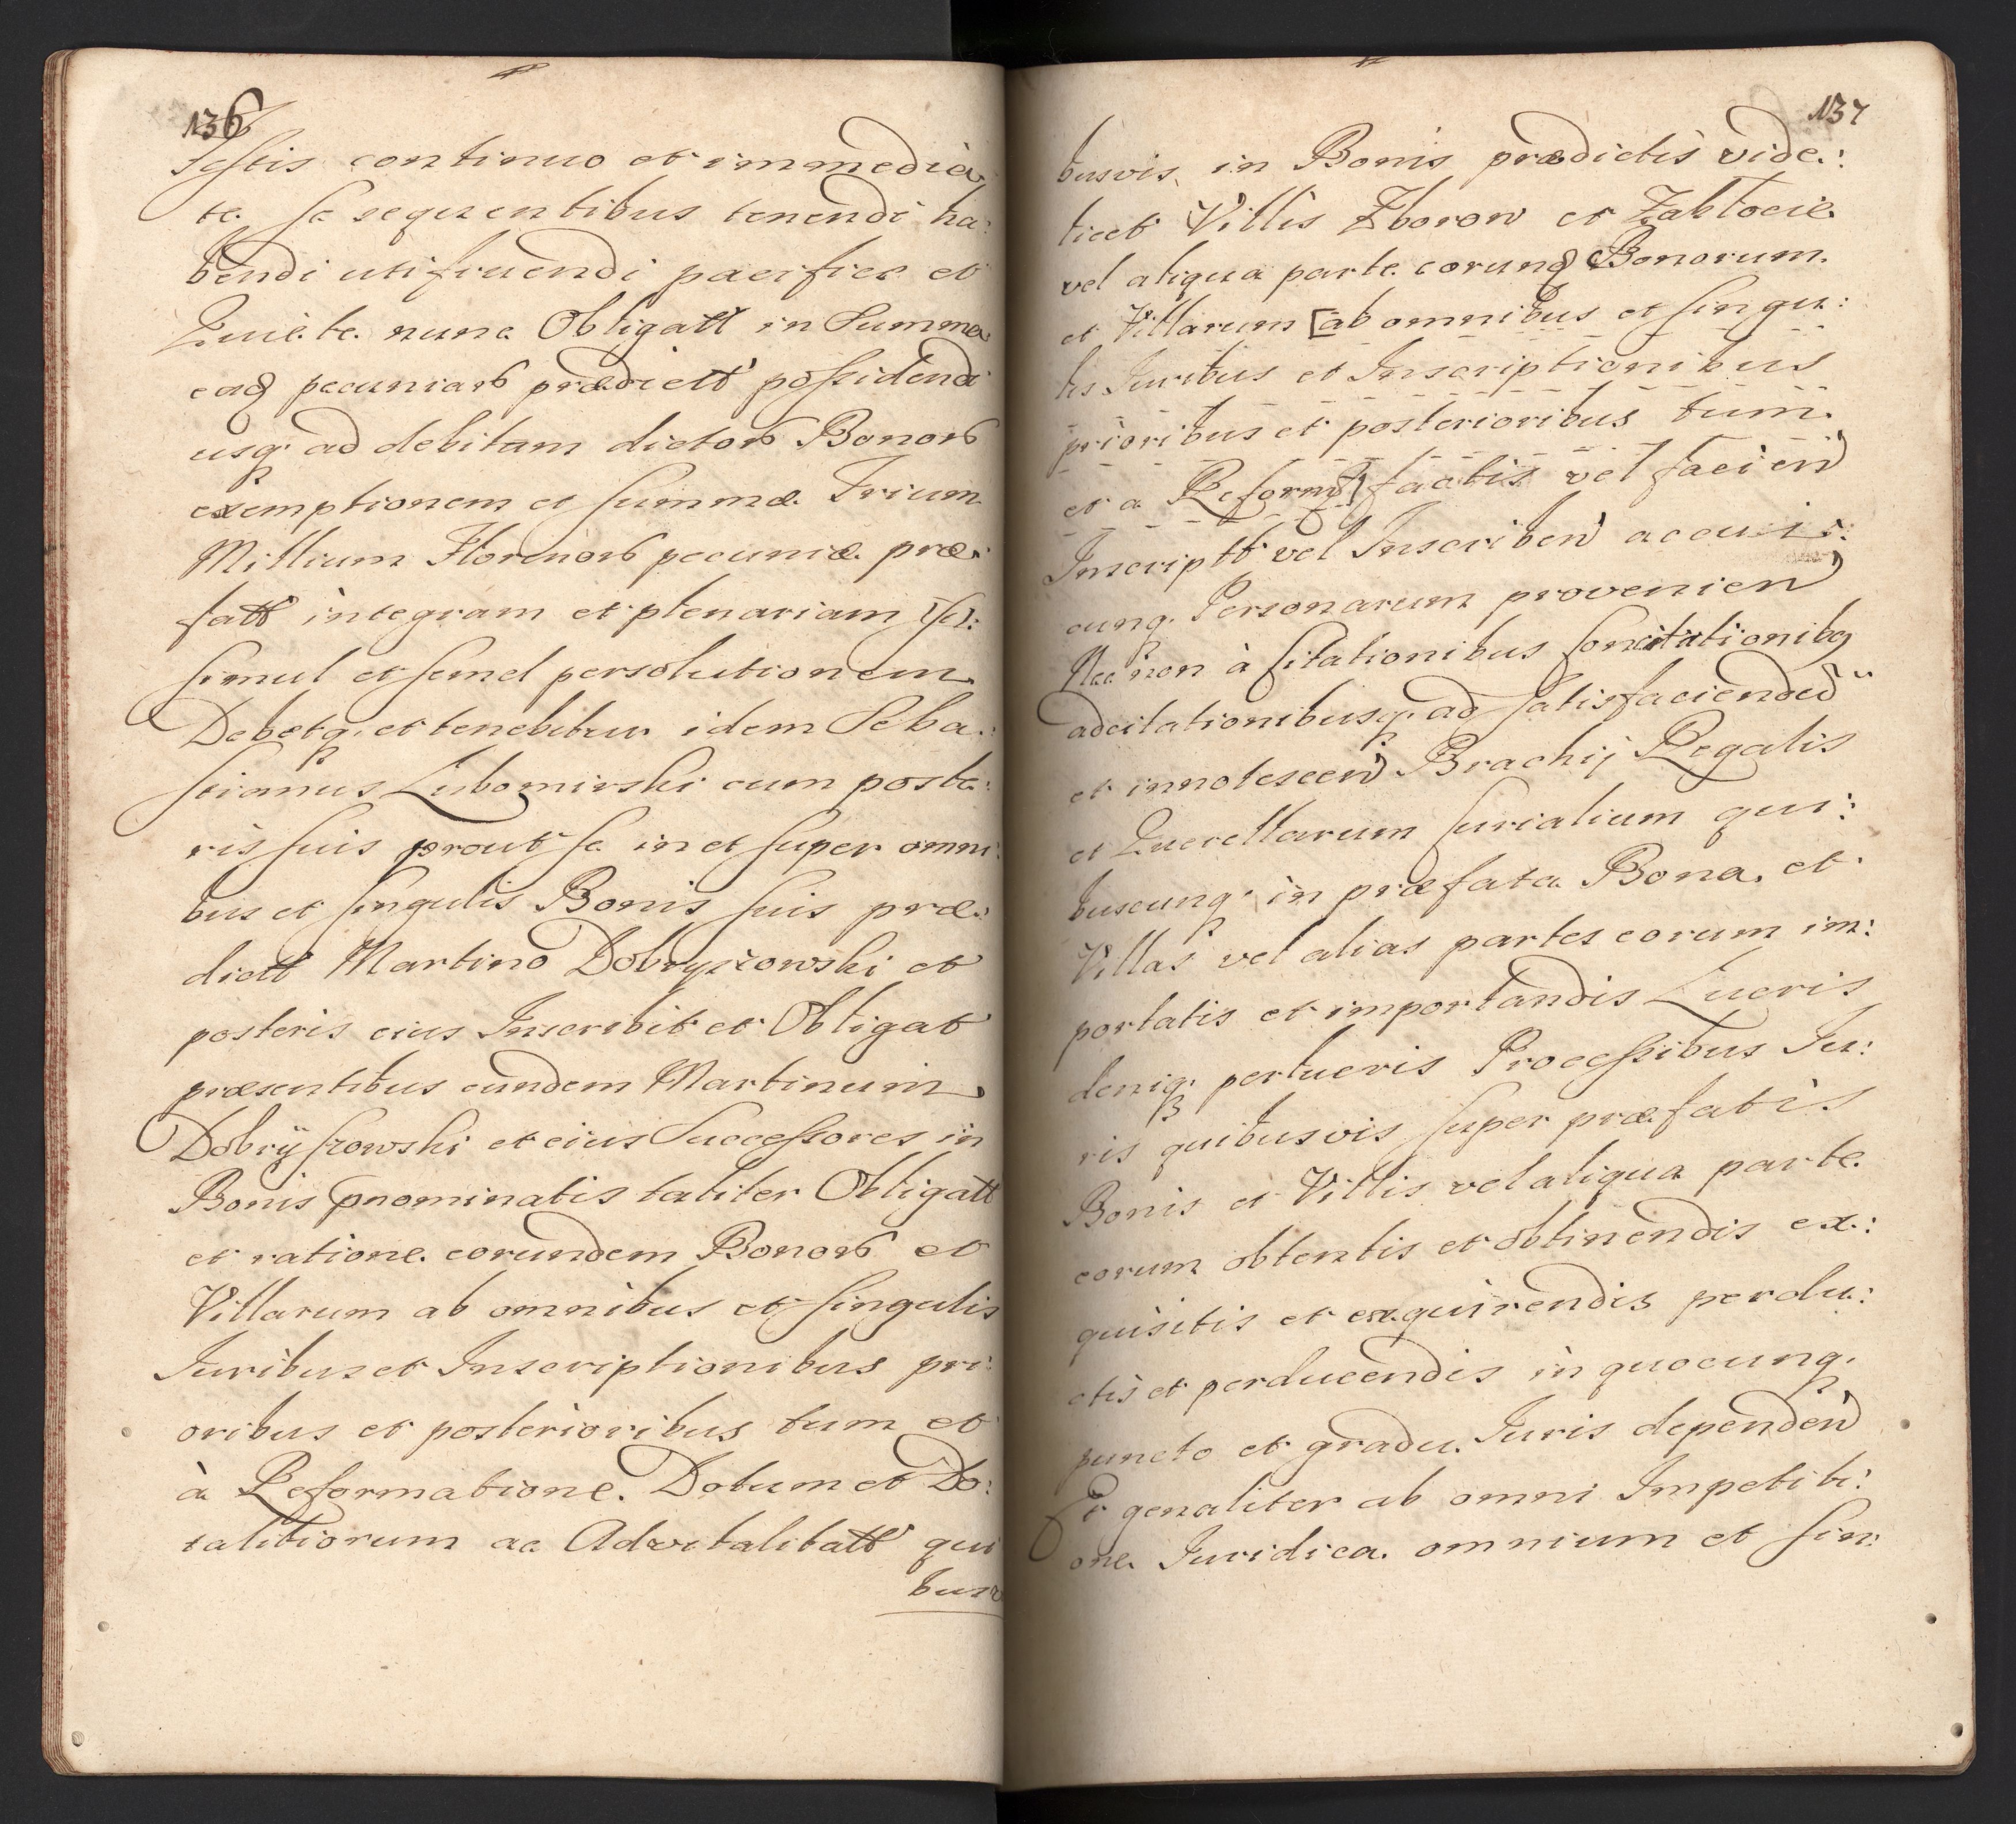 136
Festis continuo et immedia
te se sequentibus tenendi ha:
bendi utifruendi pacifice et
Quiete nunc Obligatt in Summa
eadq pecuniarb prædictt possidendi
usq ad debitam dictorb Bonorb
exemptionem et summæ Trium
Millium Florenorb pecuniæ præ:
fatt integram et plenariam
simul et semel persolutionem
Debetq et tenebitur idem Seba:
stianus Lubomirski cum poste:
ris suis prout se in et super omni:
bus et singulis Bonis suis præ:
dictt Martino Dobryszowski et
posteris eius Inscribit et Obligat
præsentibus eundem Martinum
Dobrÿszowski et eius Successores in
Bonis pnominatis taliter Obligatt
et ratione eorundem Bonorb et
Villarum ab omnibus et singulis
Juribus et Inscriptionibus pri:
oribus et posterioribus tum et
à Reformatione Dotum et Do:
talitiorum ac Advitalitatt qui
busv
137
busvis in Bonis prædictis vide:
licet Villis Zborow et Zaktocie
vel aliqua parte eorundq Bonorum
et Villarum [ab omnibus et singu:
lis Juribus et Inscriptionibus
prioribus et posterioribus tum
et a Reformatt] factis vel facien
Inscriptt vel Inscriben a quoi:
cunq Personarum provenien
Nec non à Citationibus Concitationibq
adcitationibusq ad satisfaciended
et innotescen Brachij Regalis
et Querellarum Curialium qui:
buscunq in præfata Bona et
Villas vel alias partes eorum im:
portatis et importandis Lucris
deniq perlucris Processibus Ju:
ris quibusvis super præfatis
Bonis et Villis vel aliqua parte
eorum obtentis et obtinendis ex:
quisitis et exquirendis perdu:
ctis et perducendis in quocunq
puncto et gradu Juris dependen
Et genaliter ab omni Impetiti:
one Juridica omnium et sin: